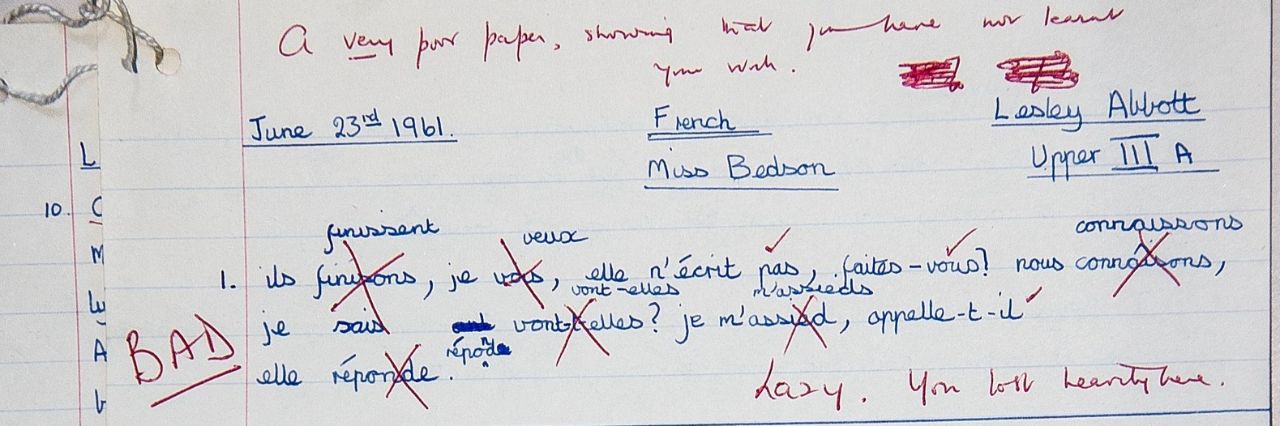 A very poor paper, showing that you have not learnt
your work.
June 23rd 1961. French Lesley Abbott
Miss Bedson Upper III A
finissent veux connaissons
1. ils finisons, je vos, elle n'écrit pas, faites-vous? nous connaîsons,
vont-elles m'assieds
je sais vont-t-elles? je m'assied, appelle-t-il
répond
elle réponde.
BAD
Lazy. You lost heavily here.
L
10. C
M
A